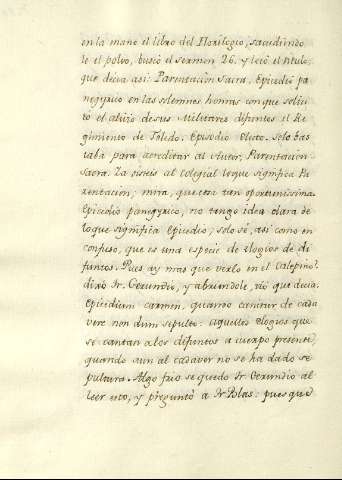 en la mano el libro del Florilegio, sacudiendo
le el polvo, buscò el sermon 26. y leiò el titulo,
que decia asi: Parentacion Sacra. Epicedio pa
negyrico en las solemnes honras con que solici
to el alivio de sus Militares difuntos el Re
gimiento de Toledo. Episodio Plieto. Solo bas
taba para acreditar al Autor; Parentacion
Sacra. Ya sabeis al Colegial lo que significa Pa
rentacion; mira, que cosa tan oportunissima.
Epicedio panegyrico, no tengo idea clara de
lo que significa Epicedio; solo sè, asi como en
confuso, que es una especie de elogios de di
funtos. Pues ay mas que verlo en el Calepino?
dixo Fr. Gerundio, y abriendole, viò que decia:
Epicedium carmen, quando canitur de cada
vere non dum sepulto: aquellos elogios que
se cantan a los difuntos a cuerpo presente,
quando aun al cadaver no se ha dado se
pultura. Algo frio se quedo Fr. Gerundio al
leer esto, y preguntò a Fr. Blas: pues que